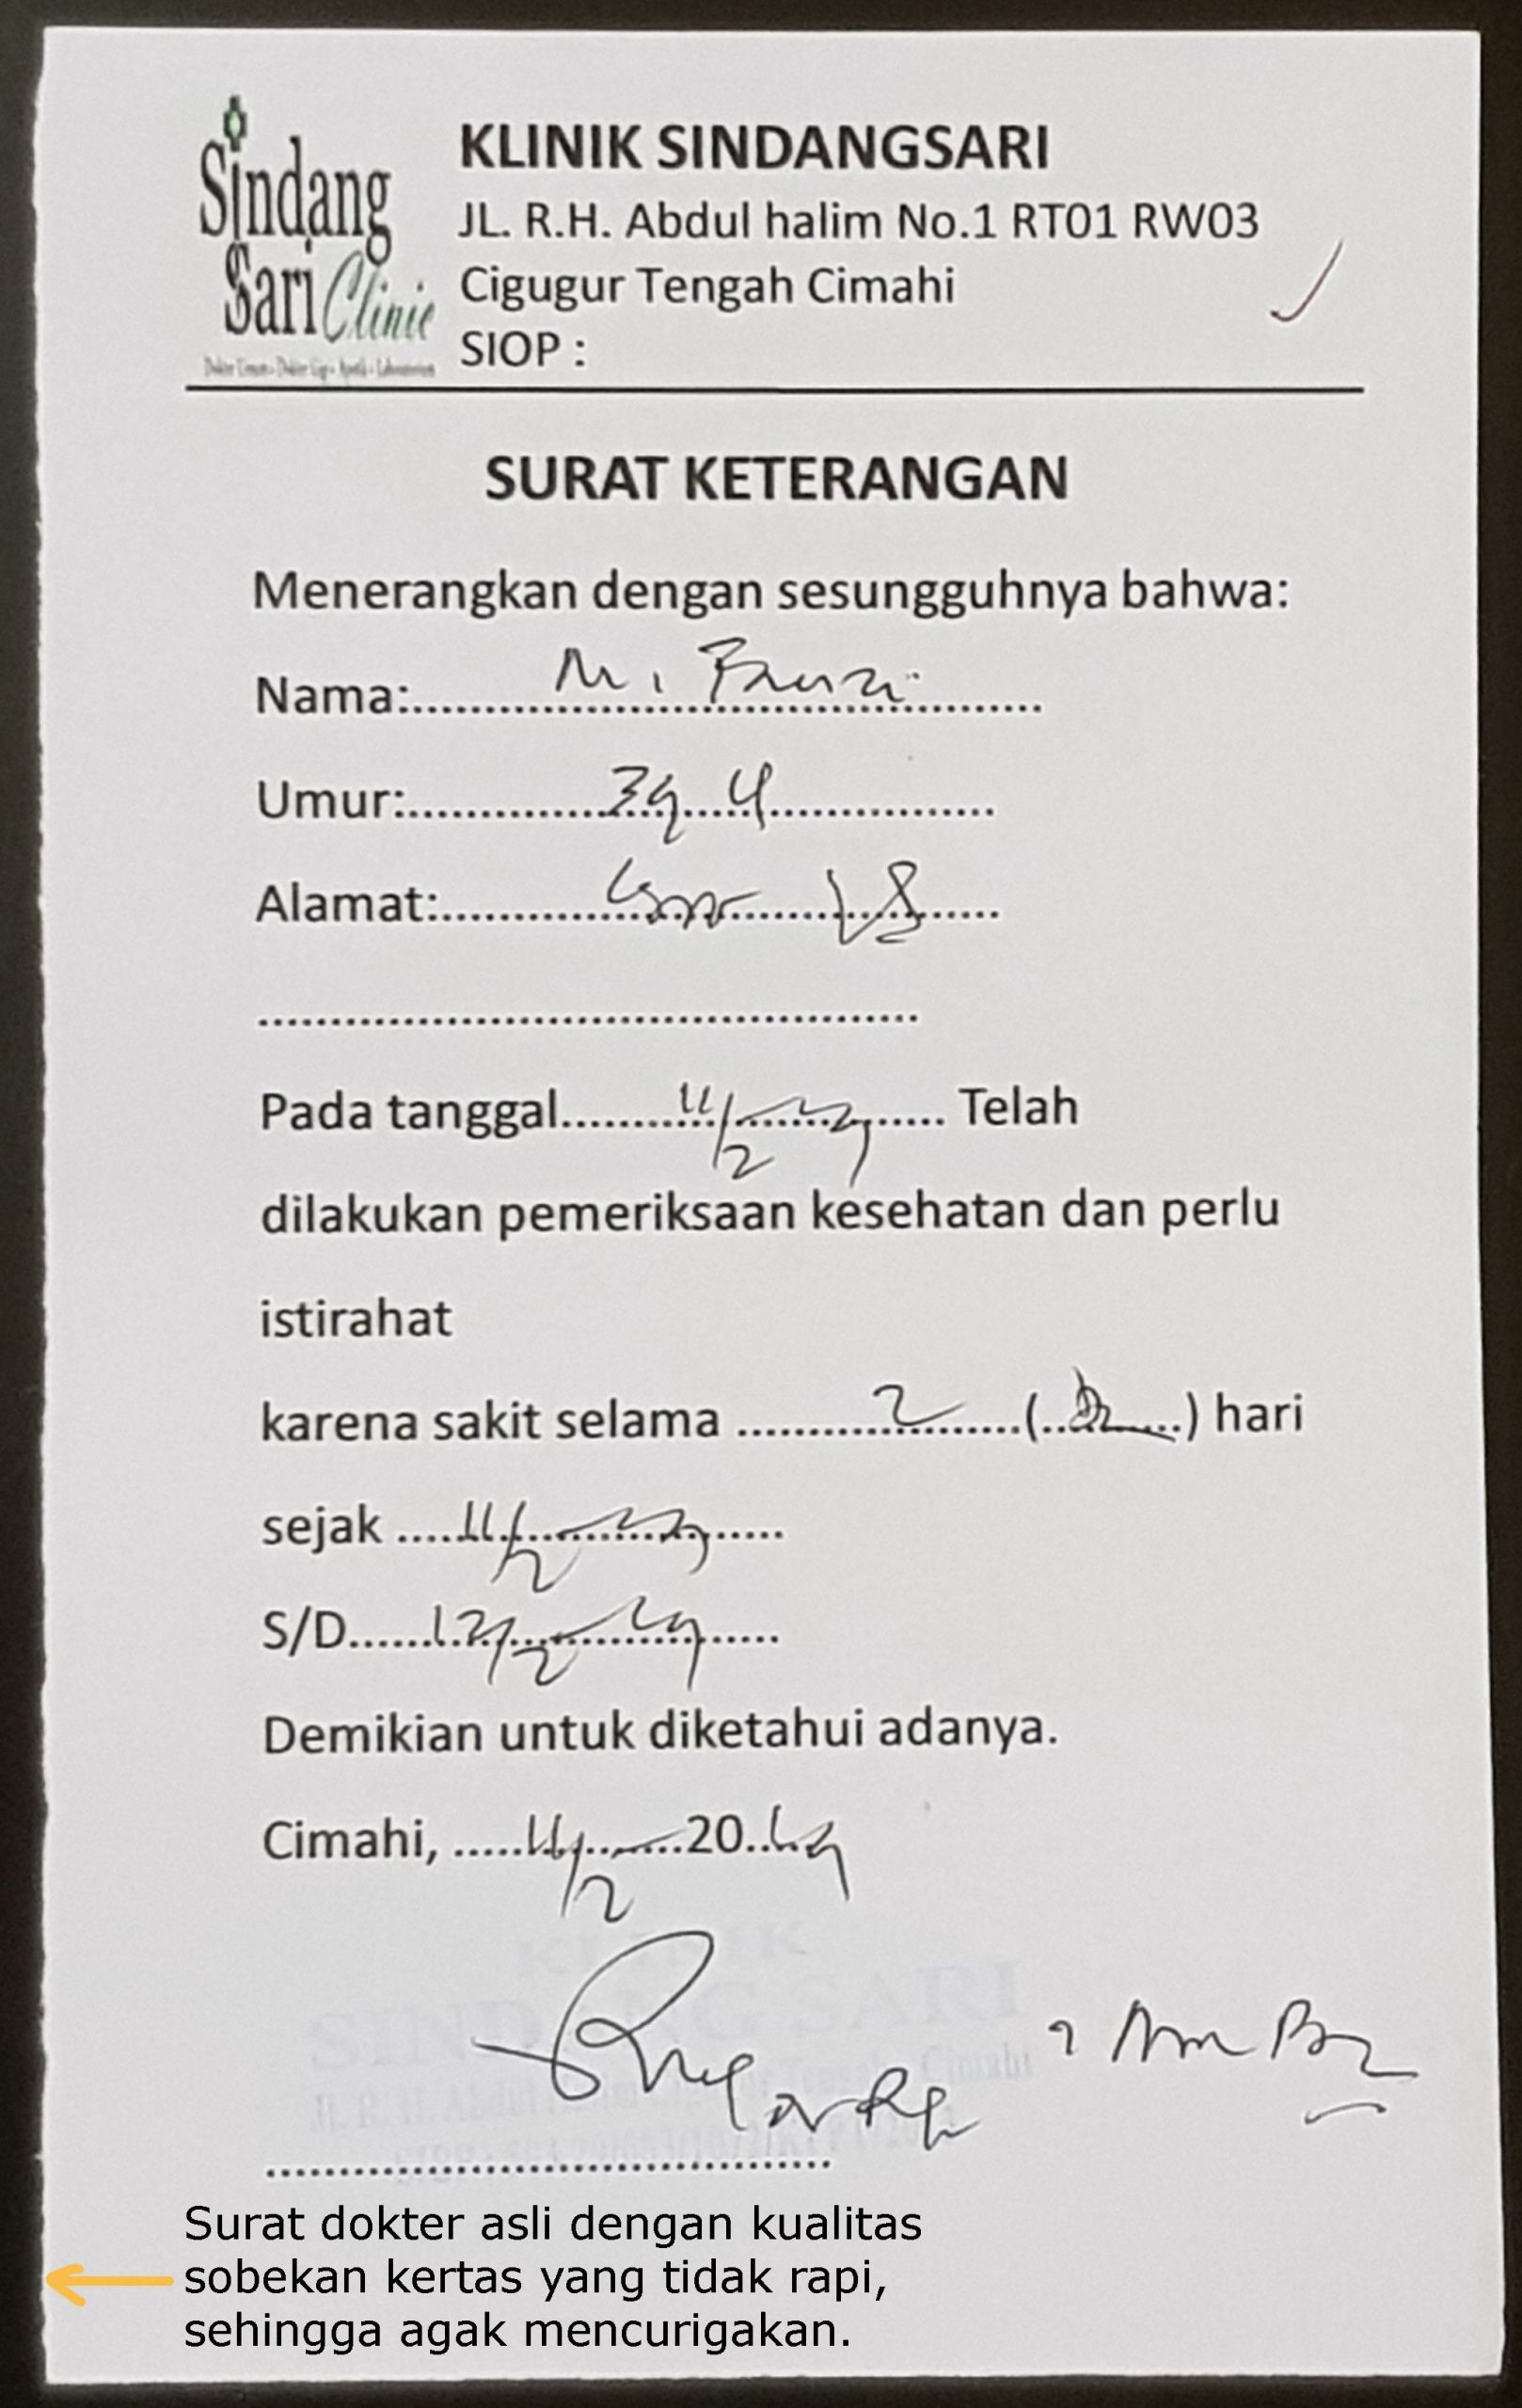 Sindang
Sari Clinic
KLINIK SINDANGSARI
JL. R.H. Abdul halim No.1 RT01 RW03
Cigugur Tengah Cimahi
SIOP :
SURAT KETERANGAN
Menerangkan dengan sesungguhnya bahwa:
Nama:..........M. Fauzi..........
Umur:..........39..........
Alamat:..........
..........
Pada tanggal..........11/2.......... Telah
dilakukan pemeriksaan kesehatan dan perlu
istirahat
karena sakit selama ..........2..........(..........) hari
sejak ..........11/2..........
S/D..........12/2..........
Demikian untuk diketahui adanya.
Cimahi, ..........11/2..........20..........
KLINIK
SINDANG SARI
..........
Surat dokter asli dengan kualitas
sobekan kertas yang tidak rapi,
sehingga agak mencurigakan.